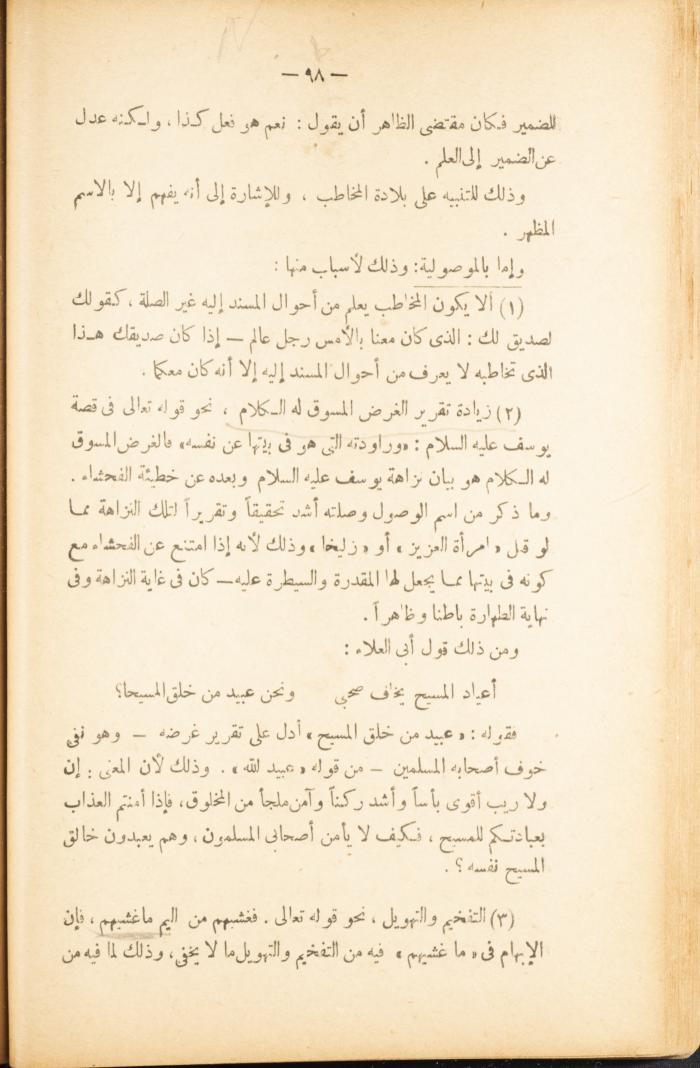 — ٩٨ —
للضمير فكان مقتضى الظاهر أن يقول : نعم هو فعل كذا ، ولكنه عدل
عن الضمير إلى العلم .
وذلك للتنبيه على بلادة المخاطب ، وللإشارة إلى أنه يفهم إلا بالاسم
المظهر .
وإما بالموصولية : وذلك لأسباب منها :
(١) ألا يكون المخاطب يعلم من أحوال المسند إليه غير الصلة ، كقولك
لصديق لك : الذى كان معنا بالأمس رجل عالم — إذا كان صديقك هذا
الذى تخاطبه لا يعرف من أحوال المسند إليه إلا أنه كان معكما .
(٢) زيادة تقرير الغرض المسوق له الكلام ، نحو قوله تعالى فى قصة
يوسف عليه السلام : «وراودته التى هو فى بيتها عن نفسه» فالغرض المسوق
له الكلام هو بيان نزاهة يوسف عليه السلام وبعده عن خطيئة الفحشاء .
وما ذكر من اسم الوصول وصلته أشد تحقيقاً وتقريراً لتلك النزاهة مما
لو قيل « امرأة العزيز » أو « زليخا » وذلك لأنه إذا امتنع عن الفحشاء مع
كونه فى بيتها مما يجعل لها المقدرة والسيطرة عليه — كان فى غاية النزاهة وفى
نهاية الطهارة باطنا وظاهراً .
ومن ذلك قول أبى العلاء :
أعباد المسيح يخاف صحبى ونحن عبيد من خلق المسيحا؟
فقوله : « عبيد من خلق المسيح » أدل على تقرير غرضه — وهو نفى
خوف أصحابه المسلمين — من قوله « عبيد الله » . وذلك لأن المعنى : إن
ولا ريب أقوى بأساً وأشد ركناً وآمن ملجأ من المخلوق، فإذا أمنتم العذاب
بعبادتكم للمسيح ، فكيف لا يأمن أصحابى المسلمون ، وهم يعبدون خالق
المسيح نفسه ؟ .
(٣) التفخيم والتهويل ، نحو قوله تعالى . فغشيهم من اليم ماغشيهم ، فإن
الإبهام فى « ما غشيهم » فيه من التفخيم والتهويل ما لا يخفى، وذلك لما فيه من